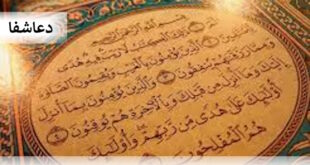 دعاشفا
بسم الله الرحمن الرحيم
الم ذلك الكتاب لا ريب فيه هدى
للمتقين الذين يؤمنون بالغيب ويقيمون الصلوة
ومما رزقناهم ينفقون والذين يؤمنون بما أنزل
إليك وما أنزل من قبلك وبالآخرة هم يوقنون
أولئك على هدى من ربهم وأولئك
هم المفلحون